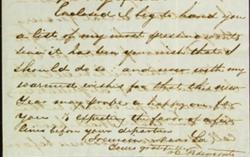 Enclosed I beg to hand you
a list of my most pressing wants
since it has been your wish that I
should do so and now with my
warmest wishes for that this new
Year may prove a happy one for
you & expecting the favor of a few
lines before your departure
I remain
Yours gratefully